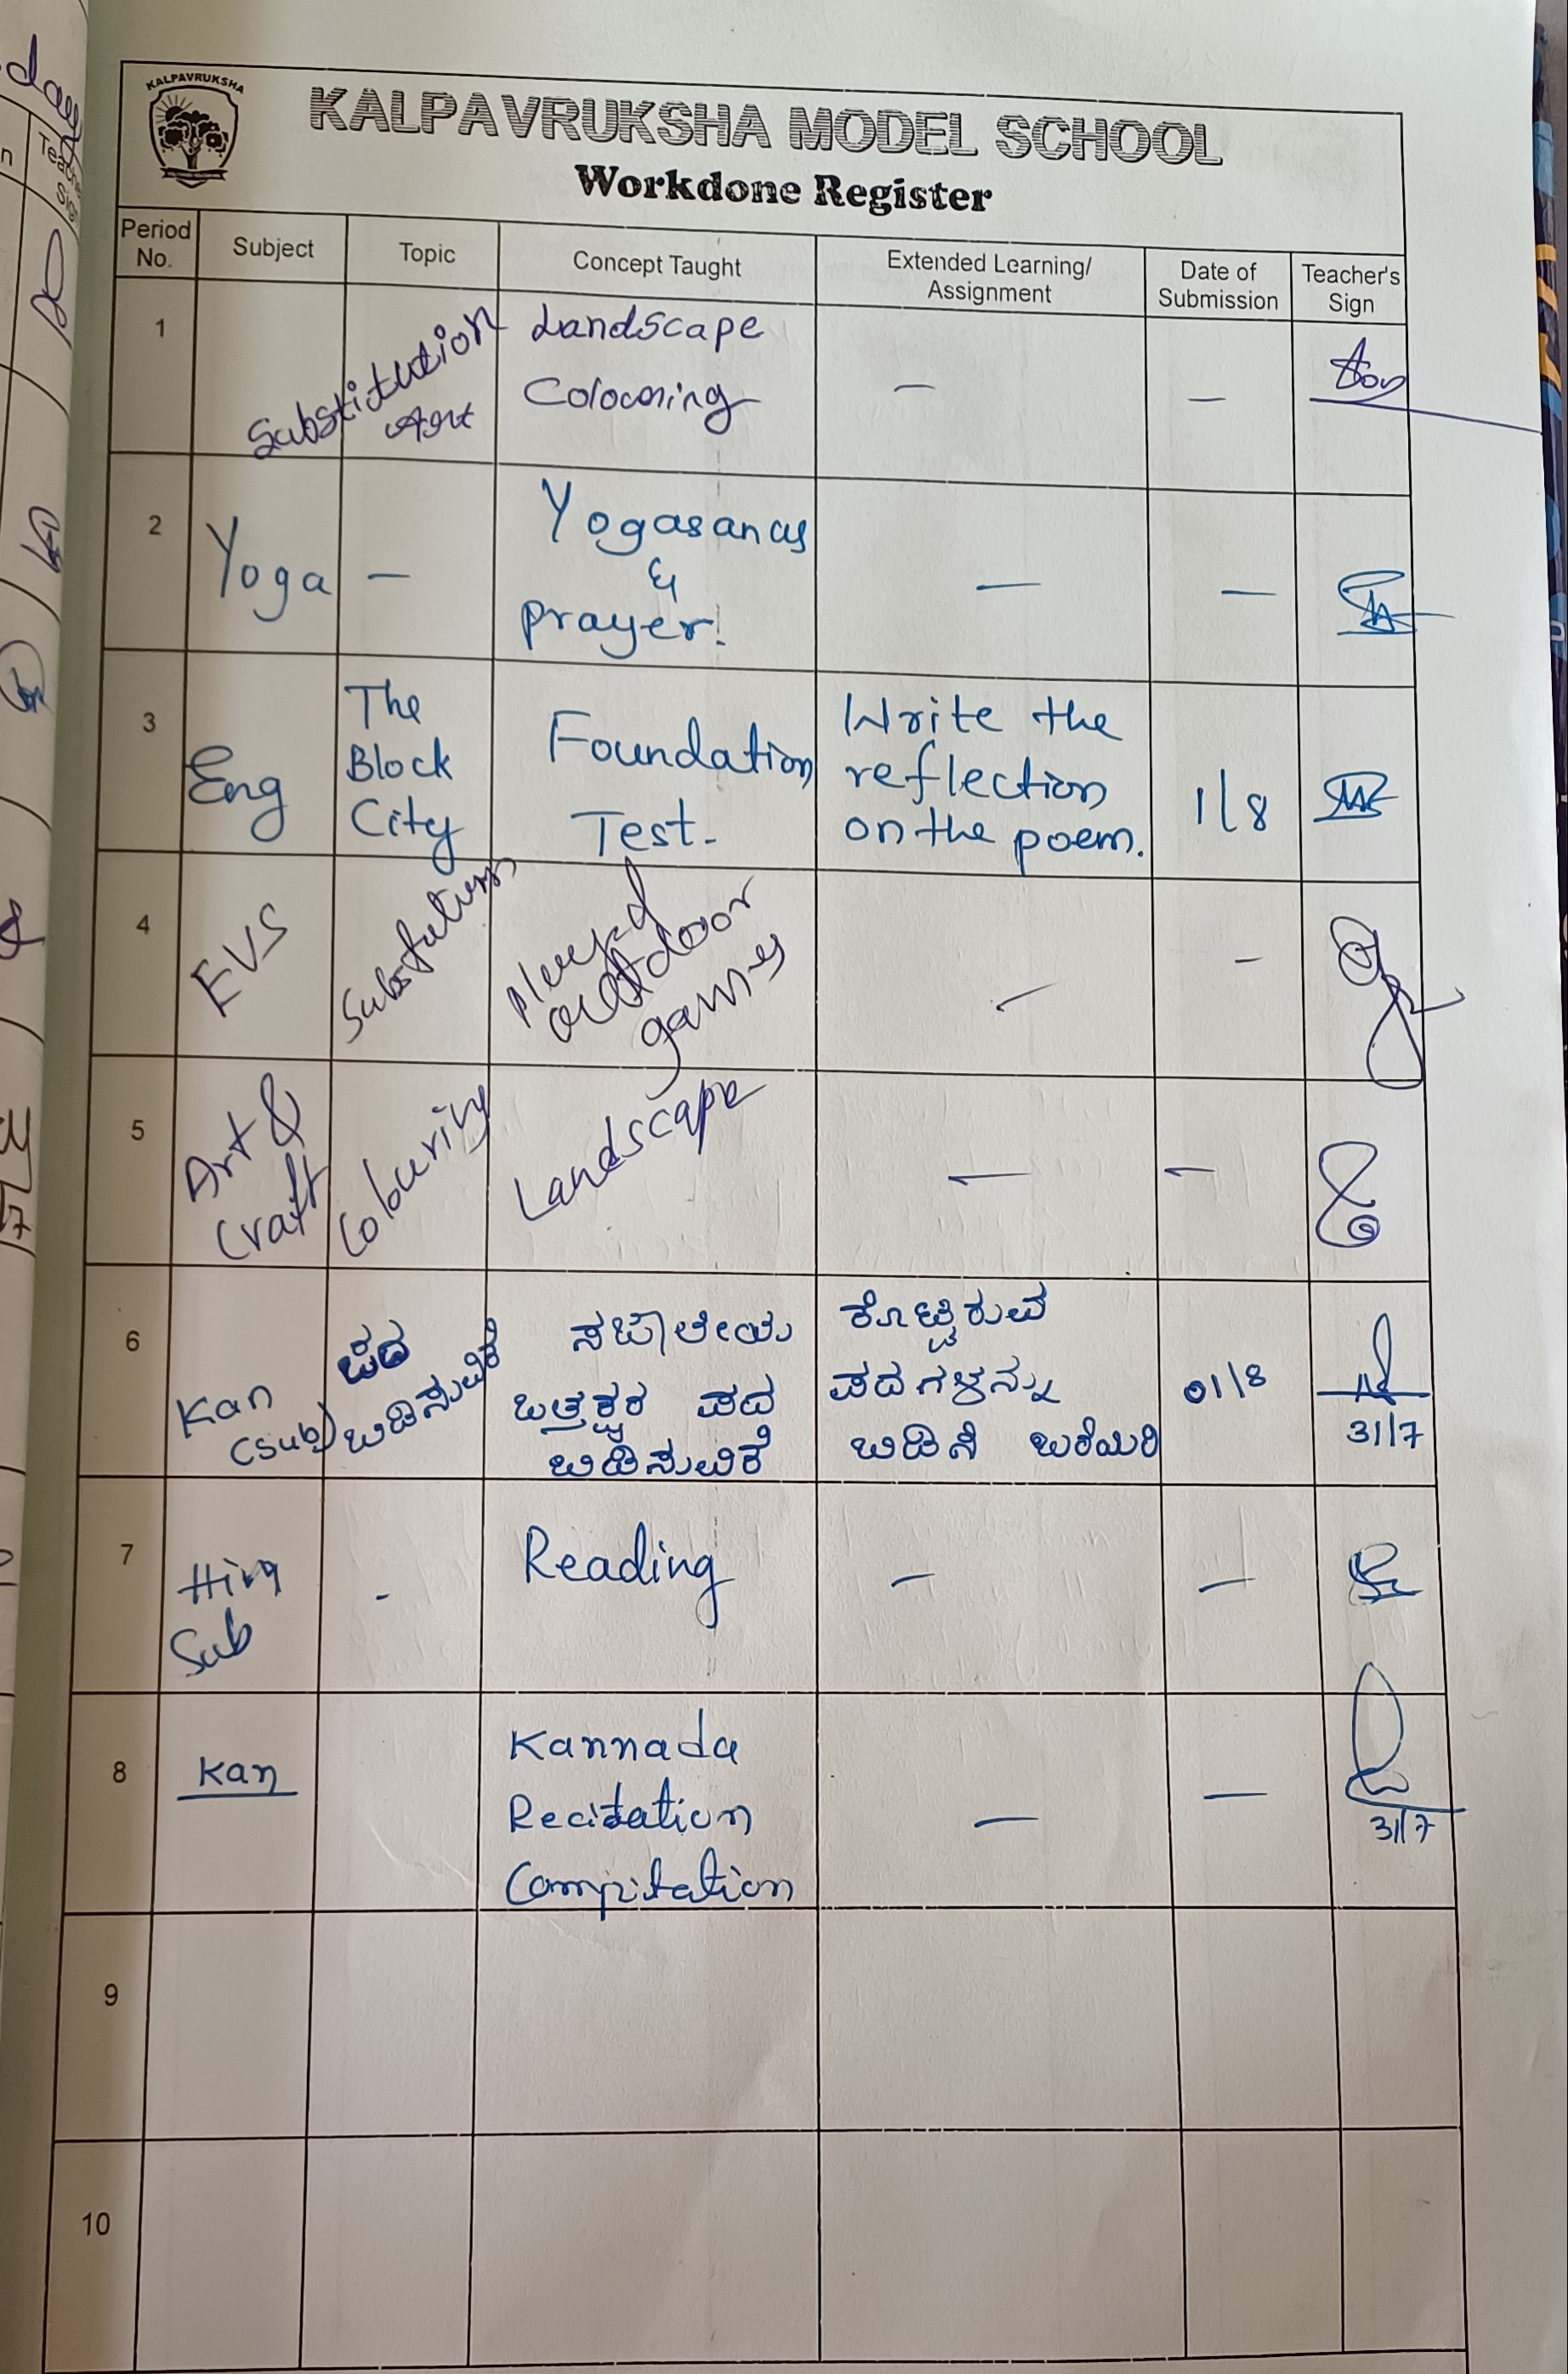 KALPAVRUKSHA
KALPAVRUKSHA MODEL SCHOOL
Workdone Register
Period No. Subject Topic Concept Taught Extended Learning/ Assignment Date of Submission Teacher's Sign
1 Substitution Art Landscape
Colouring — —
2 Yoga — Yogasanas
&
prayer. — —
3 Eng The
Block
City Foundation
Test. Write the
reflection
on the poem. 1/8
4 EVS outdoor
games — —
5 Art &
Craft Colouring Landscape — —
6 Kan
(Sub) ಪದ
ಬಿಡಿಸುವಿಕೆ ಸಜಾತೀಯ
ಒತ್ತಕ್ಷರ ಪದ
ಬಿಡಿಸುವಿಕೆ ಕೊಟ್ಟಿರುವ
ಪದಗಳನ್ನು
ಬಿಡಿಸಿ ಬರೆಯಿರಿ 01/8 31/7
7 Hin
Sub - Reading — —
8 Kan Kannada
Recitation
Compitation — — 31/7
9
10